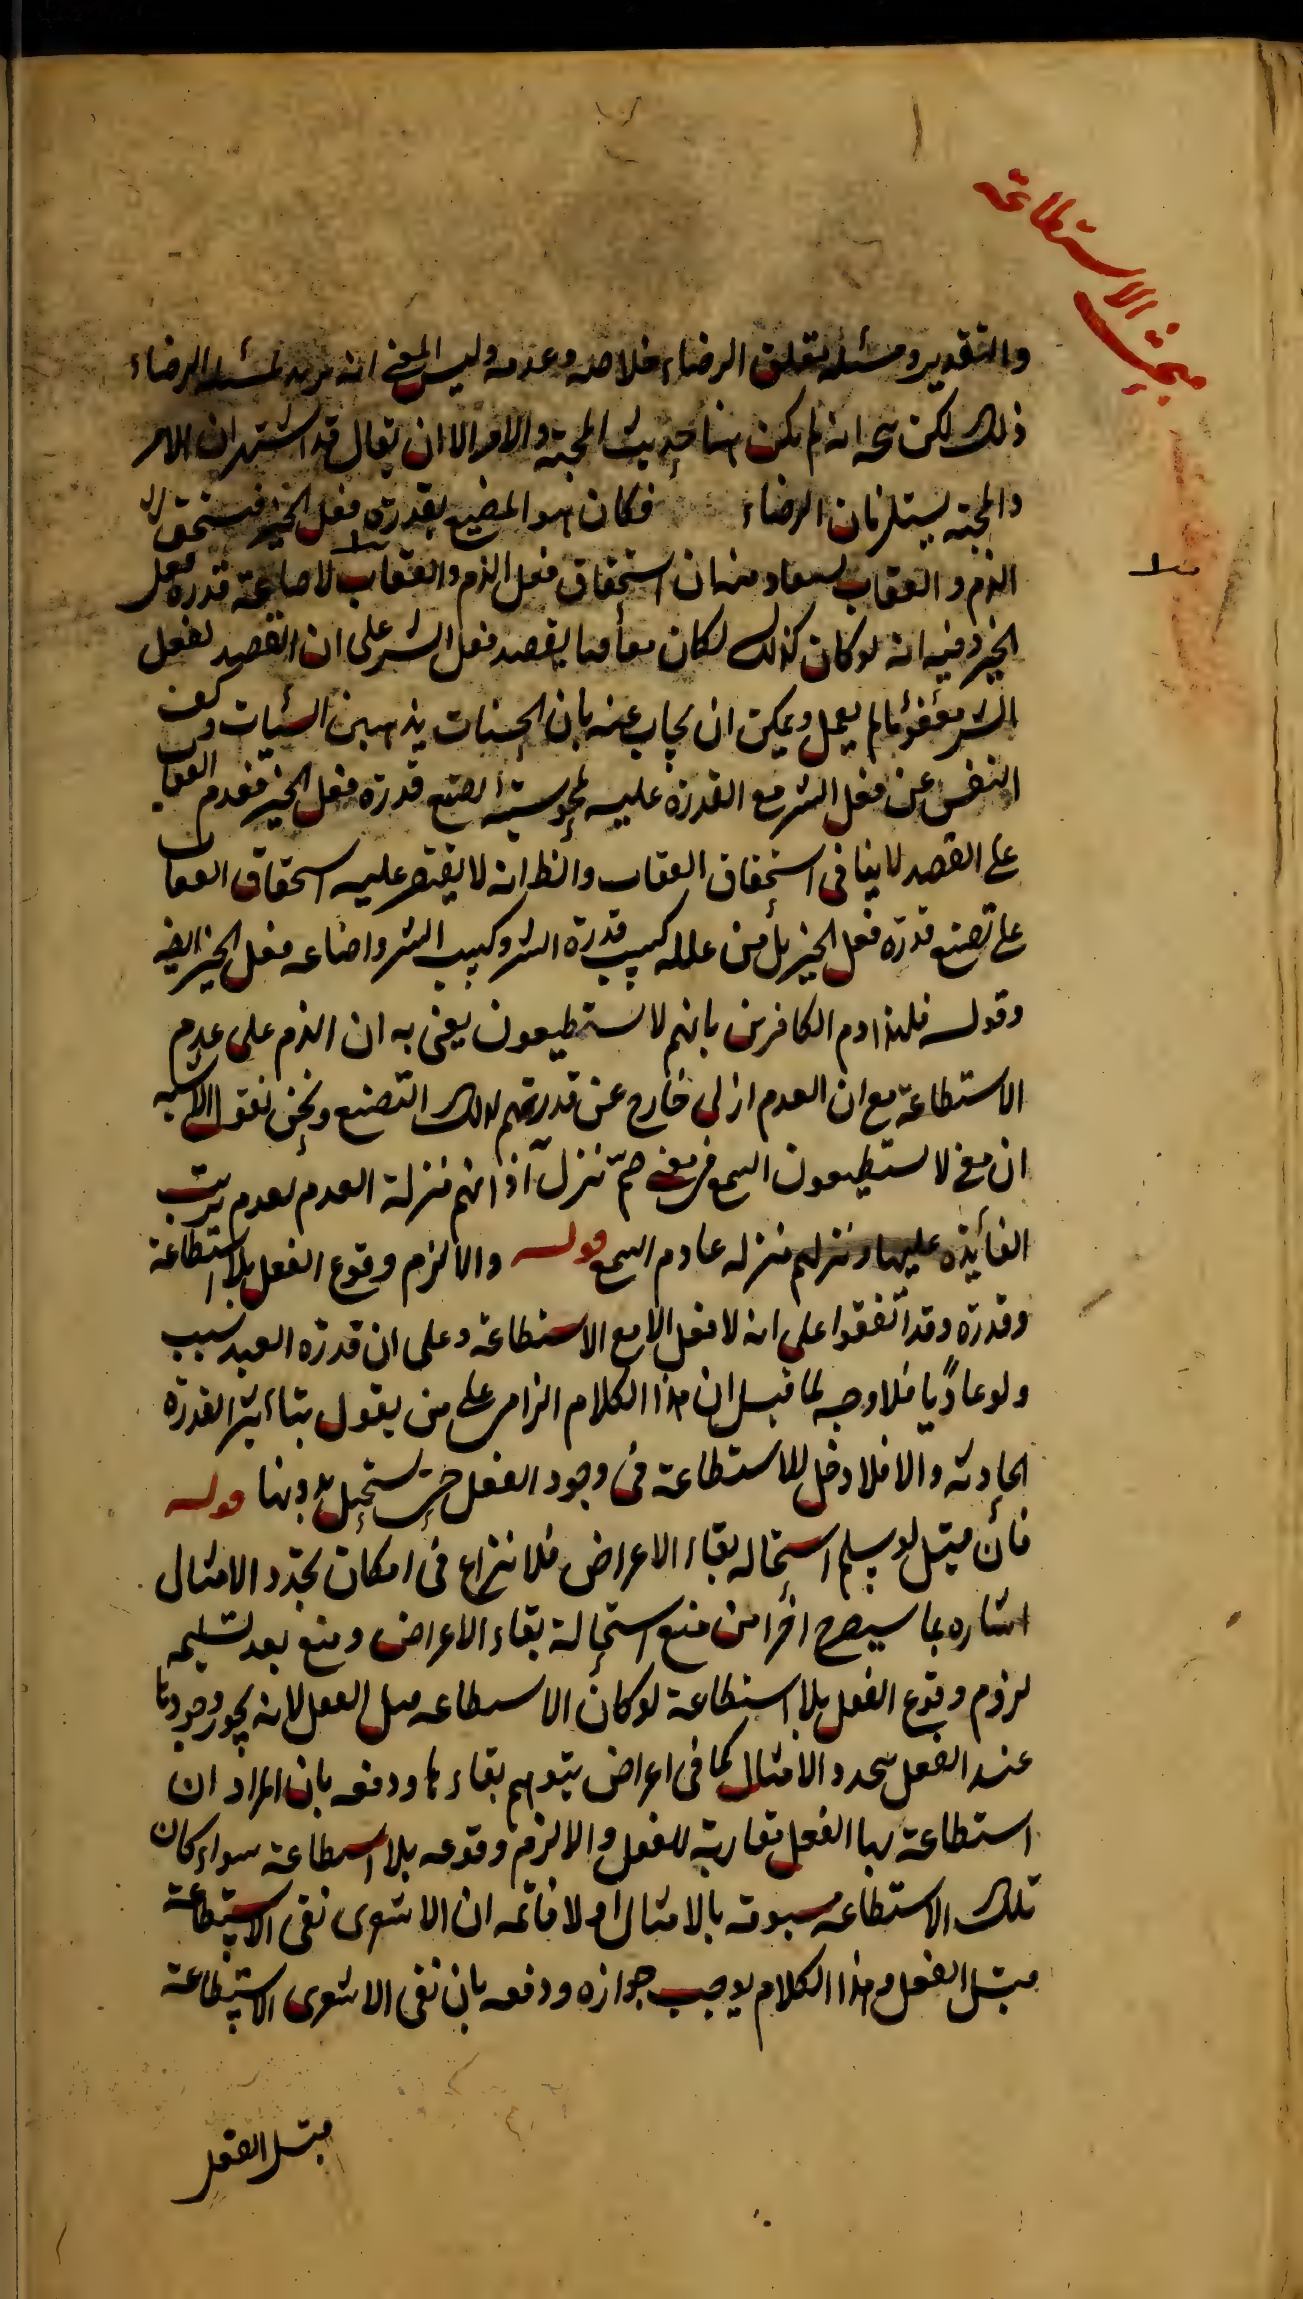 مبحث الاستطاعة
والتقدير ومسئلة تعلق الرضاء خلاصه وعدمه وليس المعنى انه يريد لمسئلة الرضاء
ذلك لكن يتجه انه لم يكن هنا حديث المحبة والامر الا ان يقال قد اشتهر ان الامر
والمحبة يستلزمان الرضاء فكان هو المضيع بقدرة فعل الخير فيستحق
الذم والعقاب يستفاد منه ان استحقاق فعل الذم والعقاب لاضاعة قدرة فعل
الخير وفيه انه لو كان كذلك لكان معاقبا بقصد فعل الشر على ان القصد لفعل
الشر معفو ما لم يعمل ويمكن ان يجاب عنه بان الحسنات يذهبن السيئات وكف
النفس عن فعل الشر مع القدرة عليه يمحو سيئة تضييع قدرة فعل الخير فعدم العقاب
على القصد لا ينافى استحقاق العقاب والظ انه لا يقتصر عليه استحقاق العقاب
على تضييع قدرة فعل الخير بل من علله كسب قدرة الشر وكسب الشر واضاعه فعل الخير ايضا
وقوله فلهذا ذم الكافرين بانهم لا يستطيعون يعنى به ان الذم على عدم
الاستطاعة مع ان العدم ازلى خارج عن قدرتهم لذلك التضييع ونحن نقول الاشبه
ان معنى لا يستطيعون السمع فى معنى صم تنزل آذانهم منزلة العدم لعدم ترتب
الفائدة عليها وتنزلهم منزله عادم السمع قوله والا لزم وقوع الفعل بلا استطاعة
وقدرة وقد اتفقوا على انه لا فعل الا مع الاستطاعة وعلى ان قدرة العبد سبب
ولو عاديا فلا وجه لما قيل ان هذا الكلام الزامى على من يقول بتاثير القدرة
الحادثة والا فلا دخل للاستطاعة فى وجود الفعل حتى يستحيل بدونها قوله
فأن قيل لو سلم استحاله بقاء الاعراض فلا نزاع فى امكان تجدد الامثال
اشاره بما سيصرح اخرا من منع استحالة بقاء الاعراض ومنع بعد تسليمه
لزوم وقوع الفعل بلا استطاعة لو كان الاستطاعه قبل الفعل لانه يجوز وجودها
عند الفعل بتجدد الامثال كما فى اعراض يتوهم بقاءها ودفعه بان المراد ان
استطاعة بها الفعل مقارنة للفعل والا لزم وقوعه بلا استطاعة سواء كان
تلك الاستطاعه مسبوقه بالامثال او لا فاتجه ان الاشعرى نفى الاستطاعة
قبل الفعل وهذا الكلام يوجب جوازه ودفعه بان نفى الاشعرى الاستطاعة
قبل الفعل